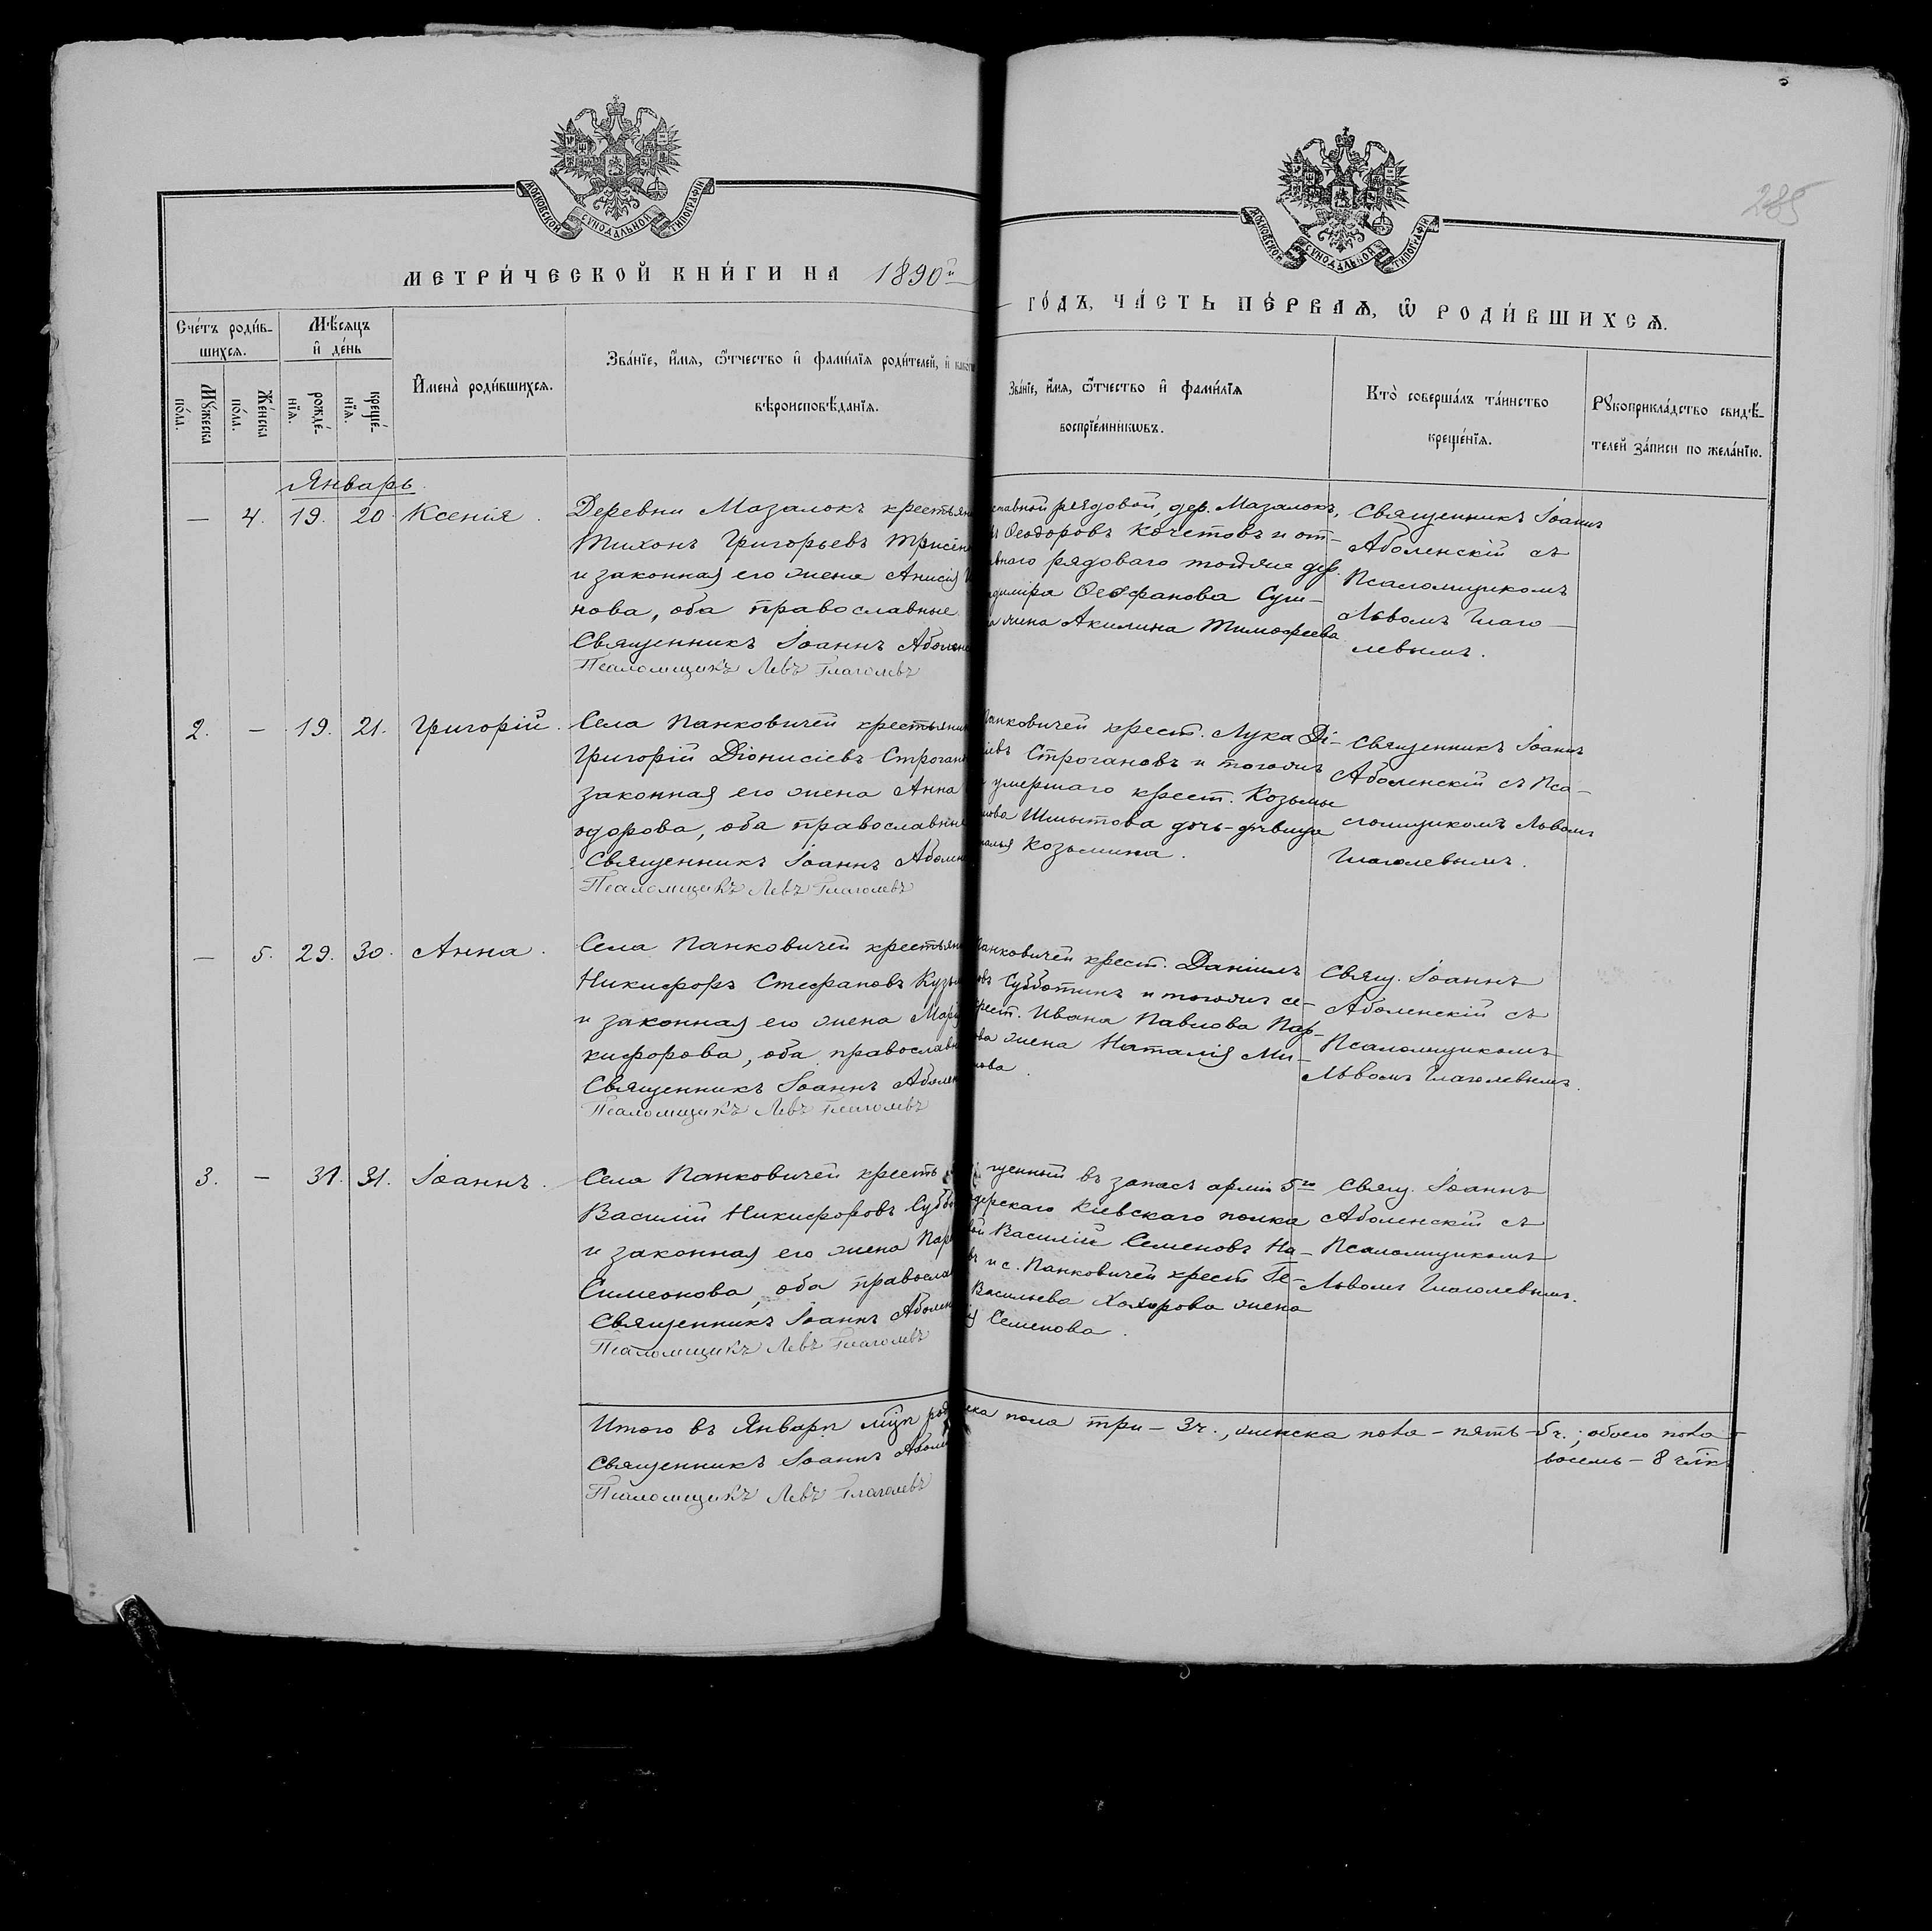 285
МОСКОВСКОЙ СѴНОДАЛЬНОЙ ТИПОГРАФІИ
МОСКОВСКОЙ СѴНОДАЛЬНОЙ ТИПОГРАФІИ
МЕТРИ́ЧЕСКОЙ КНИ́ГИ НА 1890й
ГО́ДЪ, ЧА́СТЬ ПЕ́РВАѦ, Ѡ҃ РОДИ́ВШИХСѦ.
Сче́тъ роди́в-
шихсѧ.
Мѣ́сѧцъ
и҆ де́нь
Мꙋ́жеска
по́ла.
Же́нска
по́ла.
рожде́-
нїѧ.
креще́-
нїѧ.
И҆мена̀ роди́вшихсѧ.
Зва́нїе, и҆́мѧ, ѻ҆́тчество и҆ фами́лїѧ роди́телей, и҆
вѣроисповѣ́данїѧ.
Зва́нїе, и҆́мѧ, ѻ҆́тчество и҆ фами́лїѧ
воспрїе́мникѡвъ.
Кто̀ соверша́лъ та́инство
креще́нїѧ.
Рꙋкоприкла́дство свидѣ́-
телей за́писи по жела́нїю.
Январь.
— 4. 19. 20. Ксенія.
Деревни Мазалокъ крестьян
Тихонъ Григорьевъ
и законная его жена Анисія
нова, оба православные.
Священникъ Іоаннъ Аболенс
Псаломщикъ Левъ Глаголевъ
ставной рядовой, дер. Мазалокъ,
Ѳеодоровъ Кочетовъ и от-
наго рядоваго тойже дер.
димира Ѳеофанова Суш-
жена Акилина Тимофеева
Священникъ Іоаннъ
Аболенскій съ
Псаломщикомъ
Львомъ Глаго-
левымъ.
2. — 19. 21. Григорій.
Села Панковичей крестьянин
Григорій Діонисіевъ Строган
законная его жена Анна
одорова, оба православные
Священникъ Іоаннъ Аболен
Псаломщикъ Левъ Глаголевъ
Панковичей крест. Лука Ді-
сіевъ Строгановъ и тогожъ
умершаго крест. Козьмы
Шмытова дочь-дѣвица
Козьмина.
Священникъ Іоаннъ
Аболенскій съ Пса-
ломщикомъ Львомъ
Глаголевымъ.
— 5. 29. 30. Анна.
Села Панковичей крестьян
Никифоръ Стефановъ Кузь
и законная его жена Марі
кифорова, оба православн
Священникъ Іоаннъ Аболен
Псаломщикъ Левъ Глаголевъ
Панковичей крест. Даніилъ
овъ Субботинъ и тогожъ се-
крест. Ивана Павлова Пар-
ова жена Наталія Ми-
нова.
Свящ. Іоаннъ
Аболенскій съ
Псаломщикомъ
Львомъ Глаголевымъ.
3. — 31. 31. Іоаннъ.
Села Панковичей кресть
Василій Никифоровъ Субб
и законная его жена Пар
Симеонова, оба правосла
Священникъ Іоаннъ Аболен
Псаломщикъ Левъ Глаголевъ
щенный въ запасъ арміи 5го
дерскаго Кіевскаго полка
Василій Семеновъ На-
въ и с. Панковичей крест Ге-
Васильева Хохорова жена
Семенова.
Свящ. Іоаннъ
Аболенскій съ
Псаломщикомъ
Львомъ Глаголевымъ.
Итого въ Январѣ мцѣ род
Священникъ Іоаннъ Аболен
Псаломщикъ Левъ Глаголевъ
ска пола три — 3 ч., женска пола — пять — 5 ч.; обоего пола —
восемь — 8 члк.